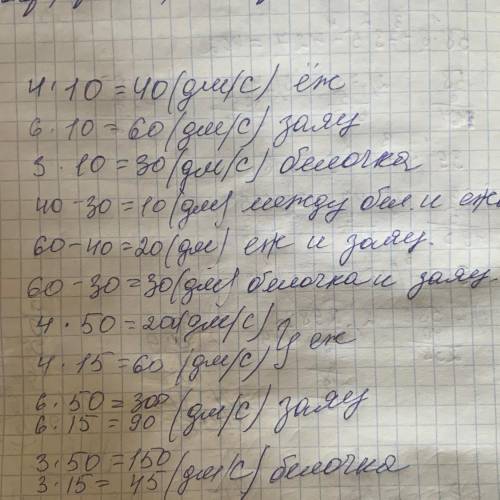 4 · 10 = 40 (дм/с) ёж
6 · 10 = 60 (дм/с) заяц
3 · 10 = 30 (дм/с) белочка
40 - 30 = 10 (дм) между бел. и еж
60 - 40 = 20 (дм) еж и заяц.
60 - 30 = 30 (дм) белочка и заяц.
4 · 50 = 200 (дм/с)
4 · 15 = 60 (дм/с) } еж
6 · 50 = 300
6 · 15 = 90 (дм/с) заяц
3 · 50 = 150
3 · 15 = 45 (дм/с) белочка